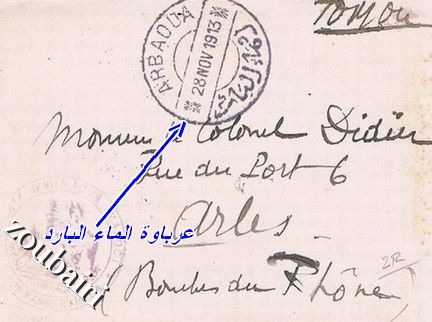 Toujou
ARBAOUA
28 NOV 1913
Monsieur le Colonel Didier
Rue du Port 6
Arles
عرباوة الماء البارد
zoubairi
(Bouches du Rhône)
2R